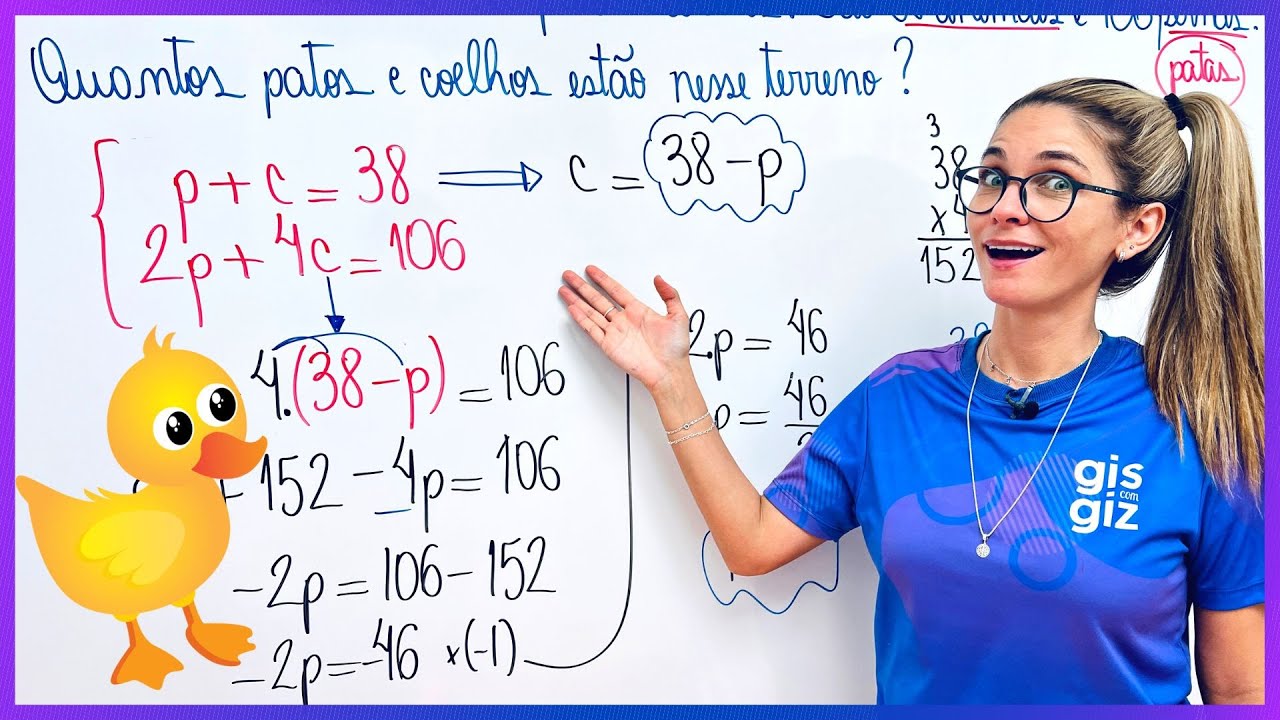 animais e 106 pernas.
patas
Quantos patos e coelhos estão nesse terreno?
p + c = 38 ⟹ c = 38 - p
2p + 4c = 106
4.(38 - p) = 106
152 - 4p = 106
-2p = 106 - 152
-2p = -46 x(-1)
2.p = 46
p = 46
3
38
x 4
152
gis
com
giz